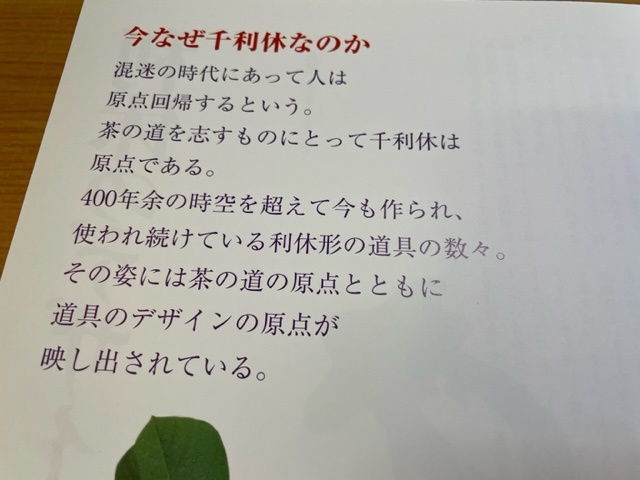 今なぜ千利休なのか
混迷の時代にあって人は
原点回帰するという。
茶の道を志すものにとって千利休は
原点である。
400年余の時空を超えて今も作られ、
使われ続けている利休形の道具の数々。
その姿には茶の道の原点とともに
道具のデザインの原点が
映し出されている。